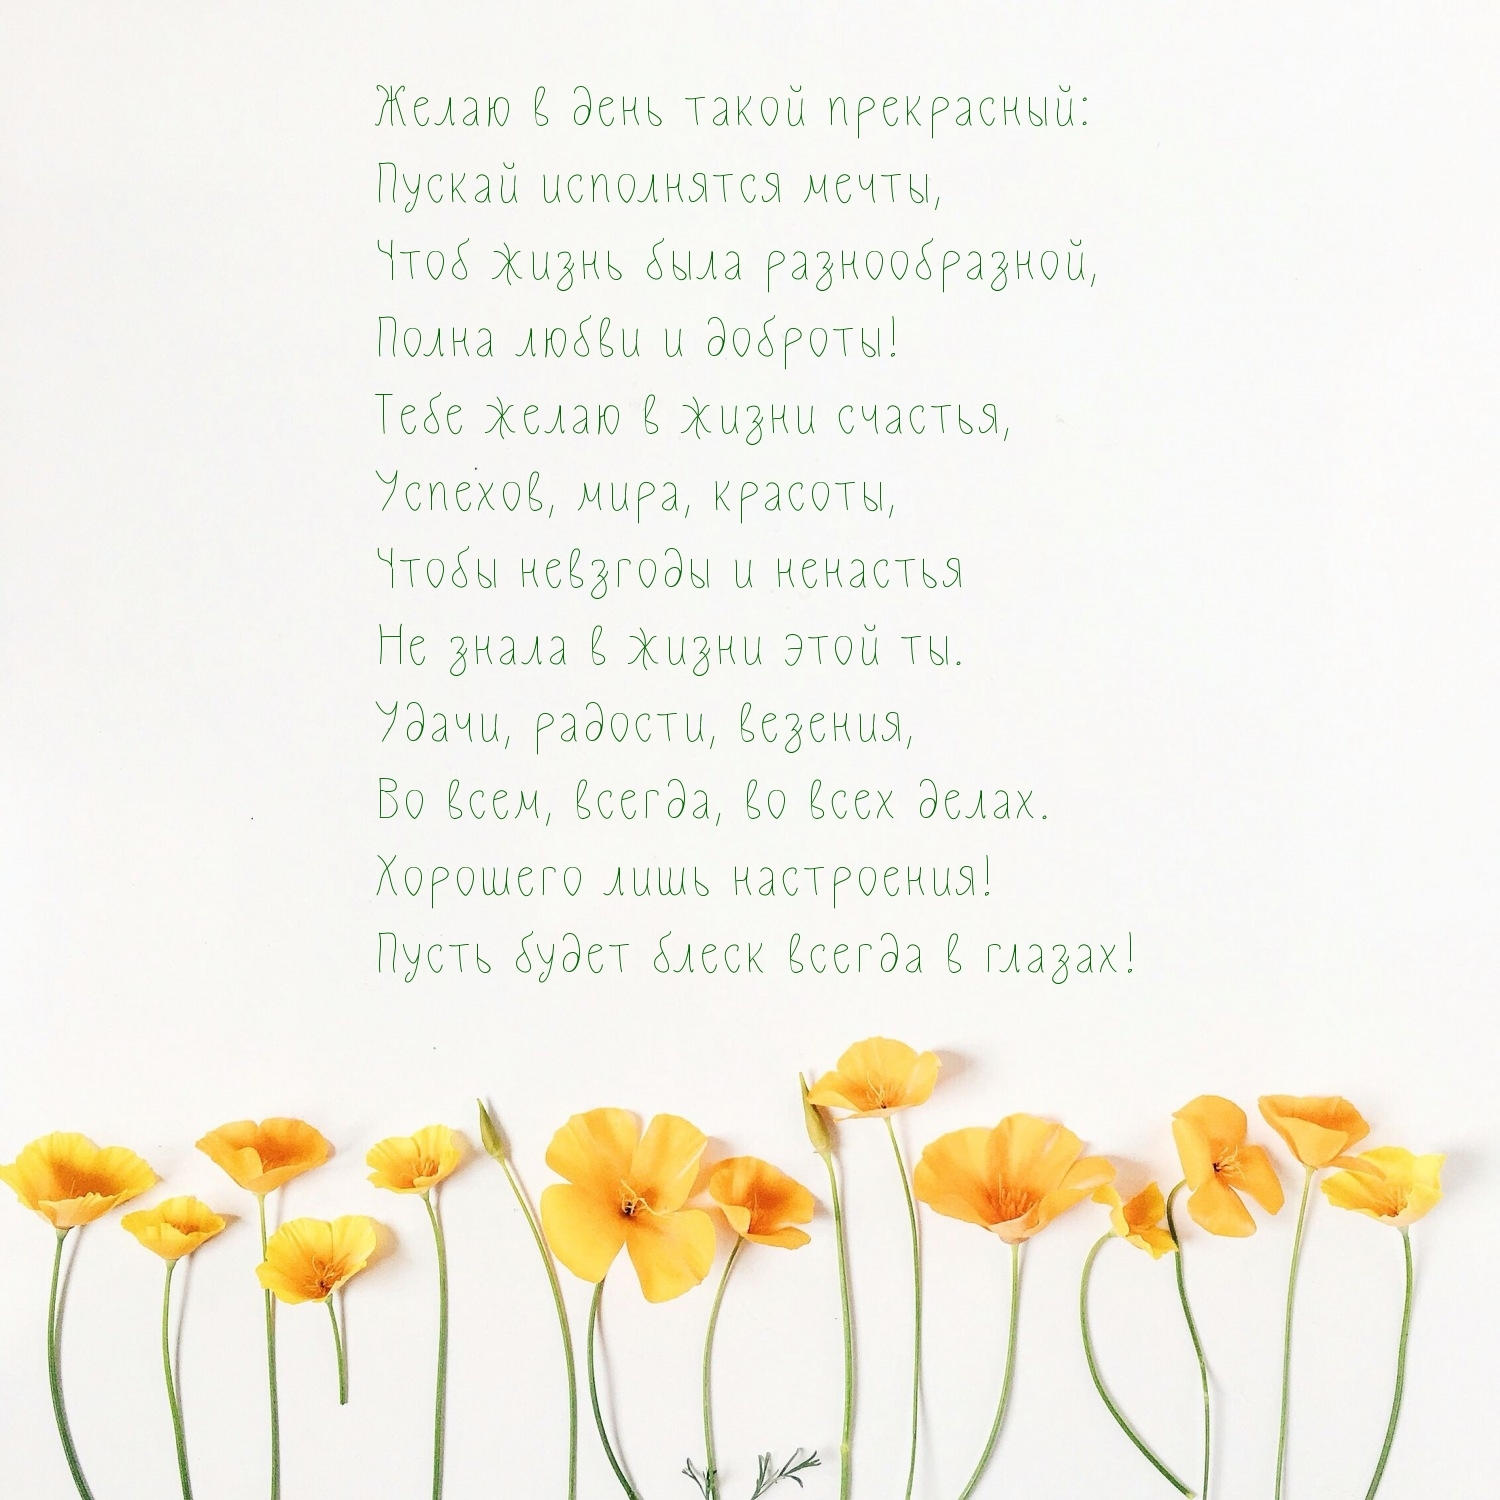 Желаю в день такой прекрасный:
Пускай исполнятся мечты,
Чтоб жизнь была разнообразной,
Полна любви и доброты!
Тебе желаю в жизни счастья,
Успехов, мира, красоты,
Чтобы невзгоды и ненастья
Не знала в жизни этой ты.
Удачи, радости, везения,
Во всем, всегда, во всех делах.
Хорошего лишь настроения!
Пусть будет блеск всегда в глазах!